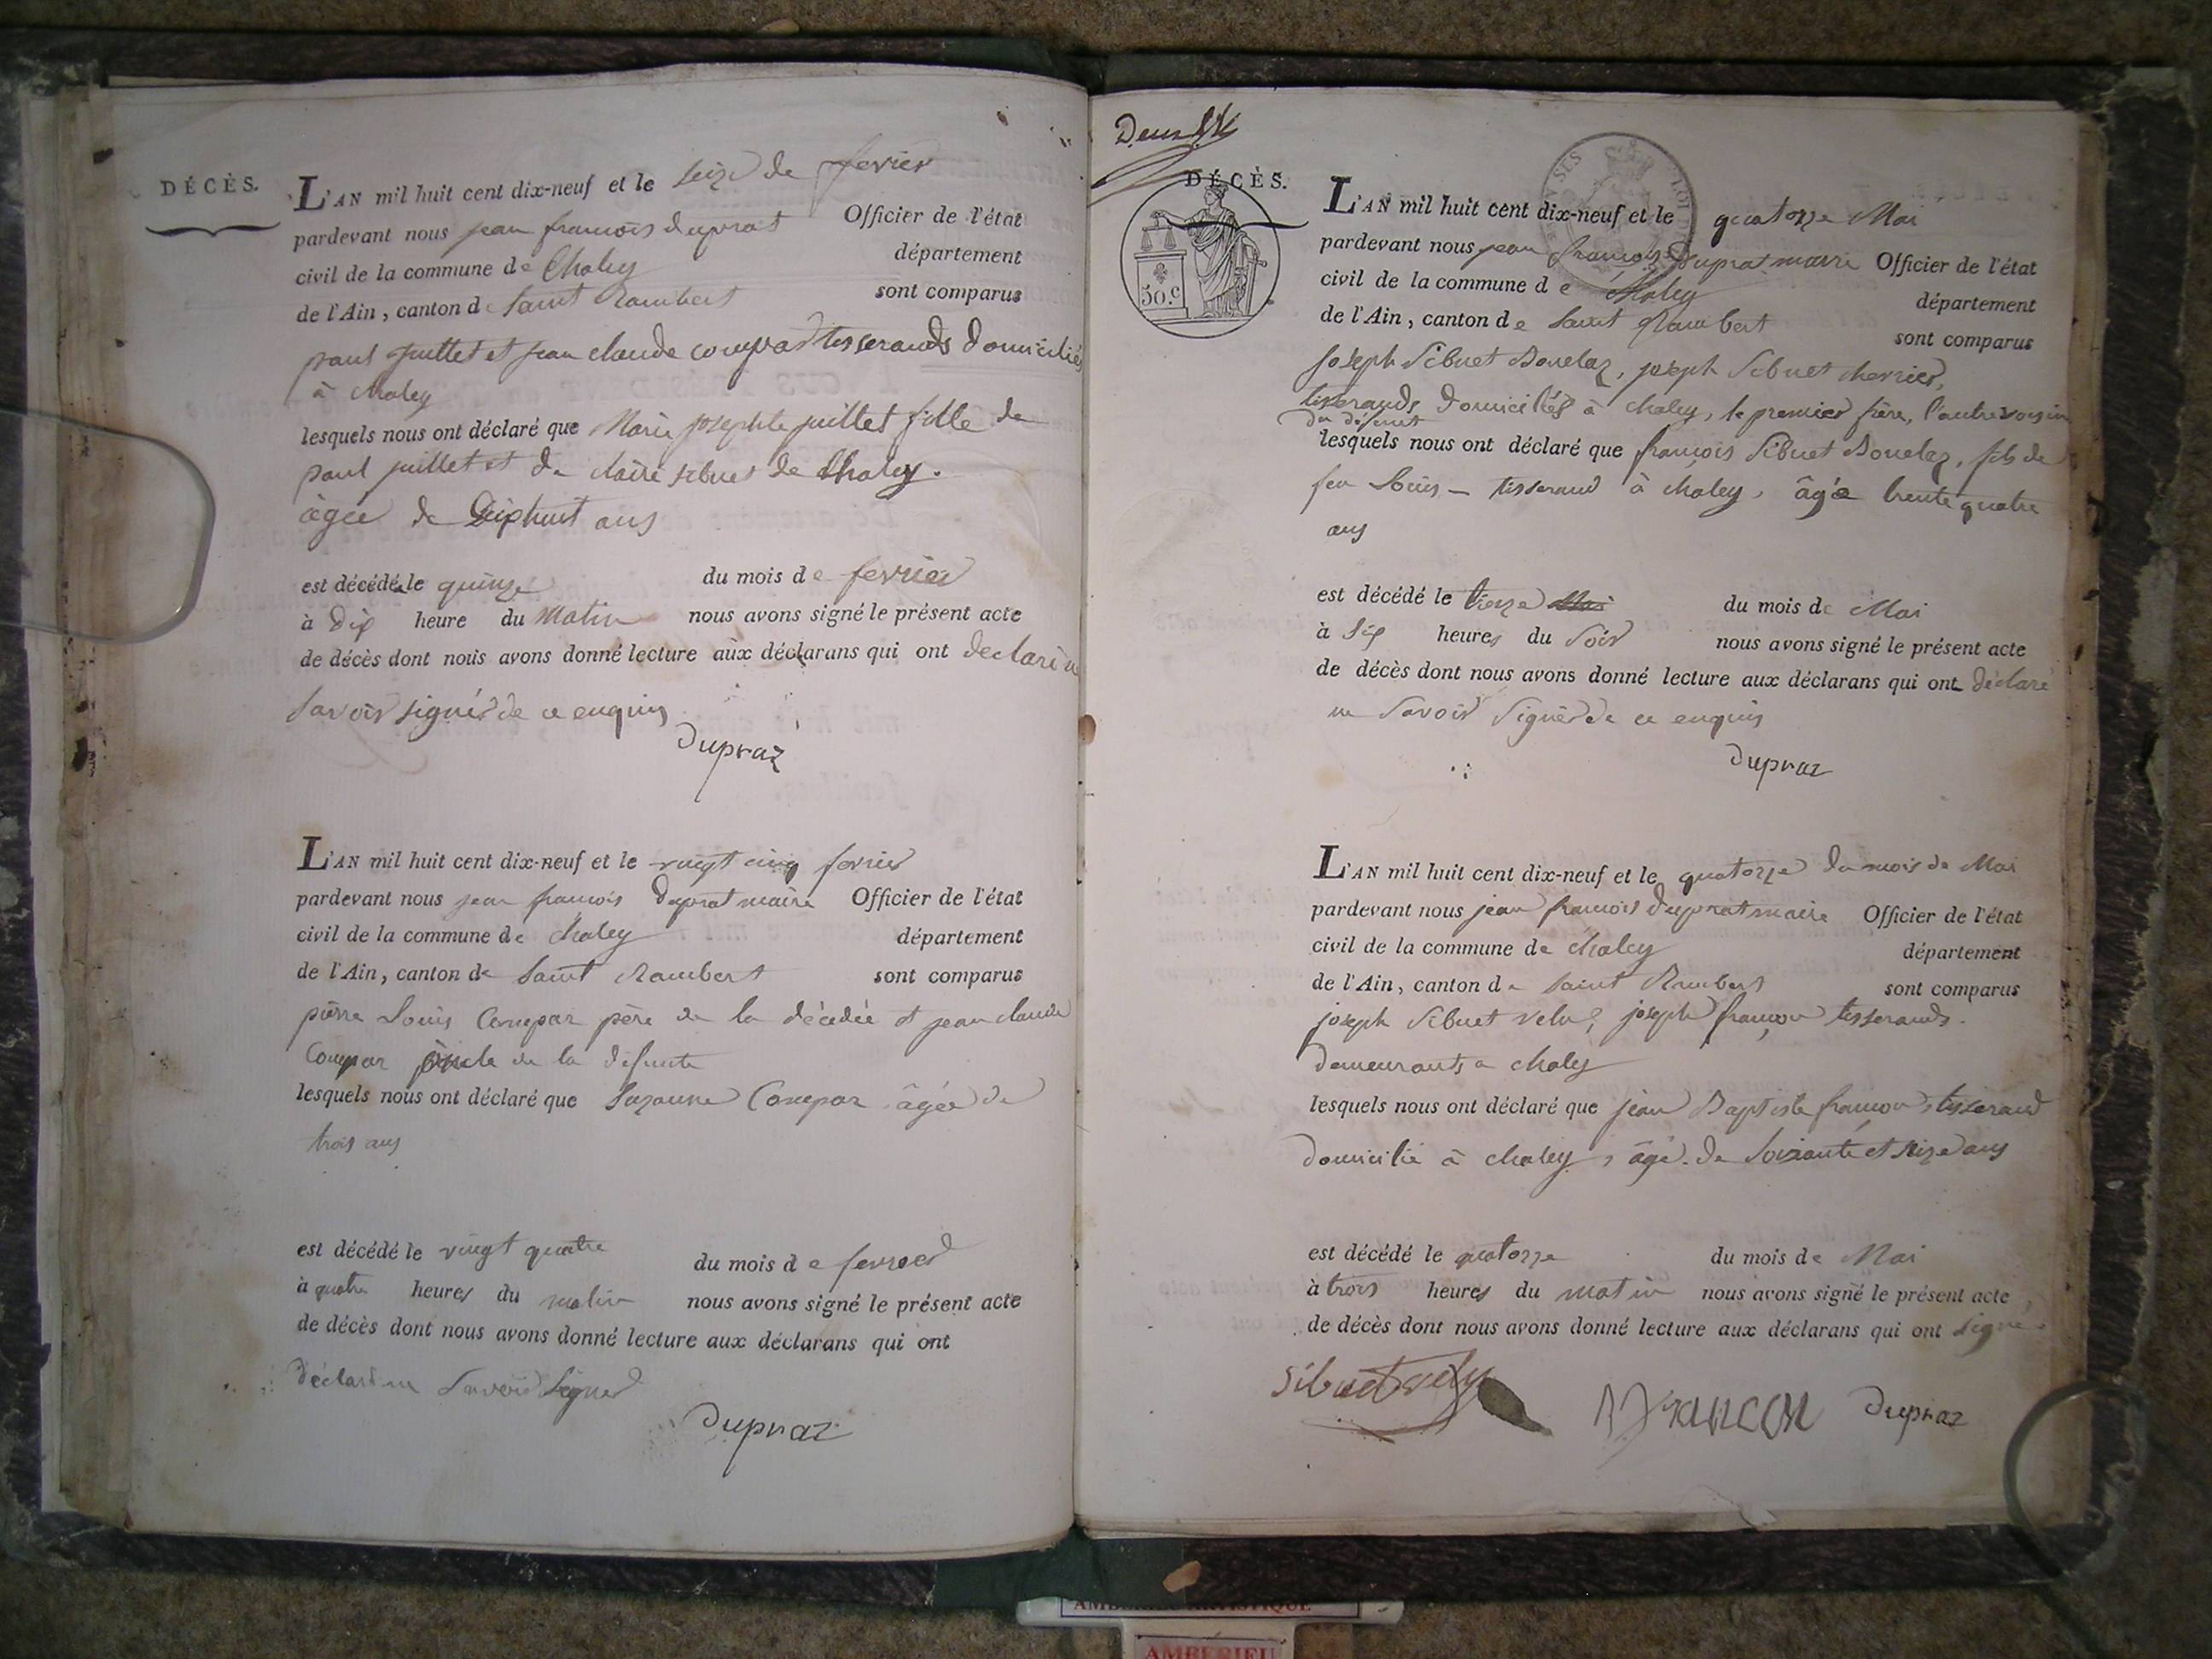 DÉCÈS.
L'AN mil huit cent dix-neuf et le seize de fevrier
pardevant nous jean francois duprat Officier de l'état
civil de la commune de Chaley département
de l'Ain, canton de Saint Rambert sont comparus
paul juillet et jean claude compar tisserands domiciliés
à Chaley
lesquels nous ont déclaré que Marie josephte juillet fille de
paul juillet et de claire sibuet de Chaley.
agée de Dixphuit ans
est décédée le quinze du mois de fevrier
à Dix heure du Matin nous avons signé le présent acte
de décès dont nous avons donné lecture aux déclarans qui ont declaré ne
Savoir signer de ce enquis
Dupraz
L'AN mil huit cent dix-neuf et le vingt cinq fevrier
pardevant nous jean francois duprat maire Officier de l'état
civil de la commune de chaley département
de l'Ain, canton de Saint Rambert sont comparus
pierre Louis Compar père de la décédée et jean claude
Compar oncle de la défunte
lesquels nous ont déclaré que Suzanne Compar âgée de
trois ans
est décédé le vingt quatre du mois de fevrier
à quatre heures du matin nous avons signé le présent acte
de décès dont nous avons donné lecture aux déclarans qui ont
déclaré ne Savoir Signer
Dupraz
DÉCÈS.
50.c
L'AN mil huit cent dix-neuf et le quatorze Mai
pardevant nous jean francois Duprat maire Officier de l'état
civil de la commune de Chaley département
de l'Ain, canton de Saint Rambert sont comparus
joseph Sibuet Bouelaz, joseph Sibuet cherrier,
tisserands domiciliés à chaley, le premier frère, l'autre voisin
du défunt
lesquels nous ont déclaré que francois Sibuet Bouelaz, fils de
feu Louis - tisserand à chaley, âgé trente quatre
ans
est décédé le treize Mai du mois de Mai
à Six heures du Soir nous avons signé le présent acte
de décès dont nous avons donné lecture aux déclarans qui ont déclaré
ne Savoir Signer de ce enquis
Dupraz
L'AN mil huit cent dix-neuf et le quatorze du mois de Mai
pardevant nous jean francois duprat maire Officier de l'état
civil de la commune de chaley département
de l'Ain, canton de Saint Rambert sont comparus
joseph Sibuet velu, joseph françon tisserands.
demeurants a chaley
lesquels nous ont déclaré que jean Baptiste françon, tisserand
domicilié à chaley, âgé de Soixante et seize ans
est décédé le quatorze du mois de Mai
à trois heures du matin nous avons signé le présent acte
de décès dont nous avons donné lecture aux déclarans qui ont signé
Sibuet velu françon Dupraz
AMBERIEU